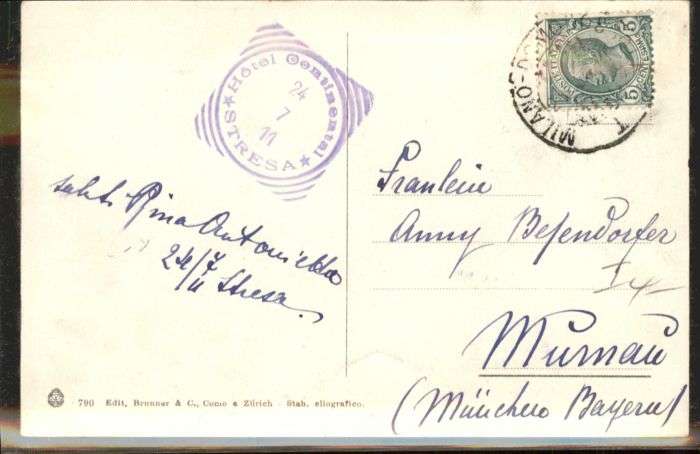 Hôtel Continental
24
7
11
★ STRESA ★
5 5
MILANO-DO
saluti Rina Antonietta
24/7
11 Stresa.
Fraulein
Anny Besendorfer
Murnau
(München Bayern)
790 Edit. Brunner & C., Como e Zürich - Stab. eliografico.